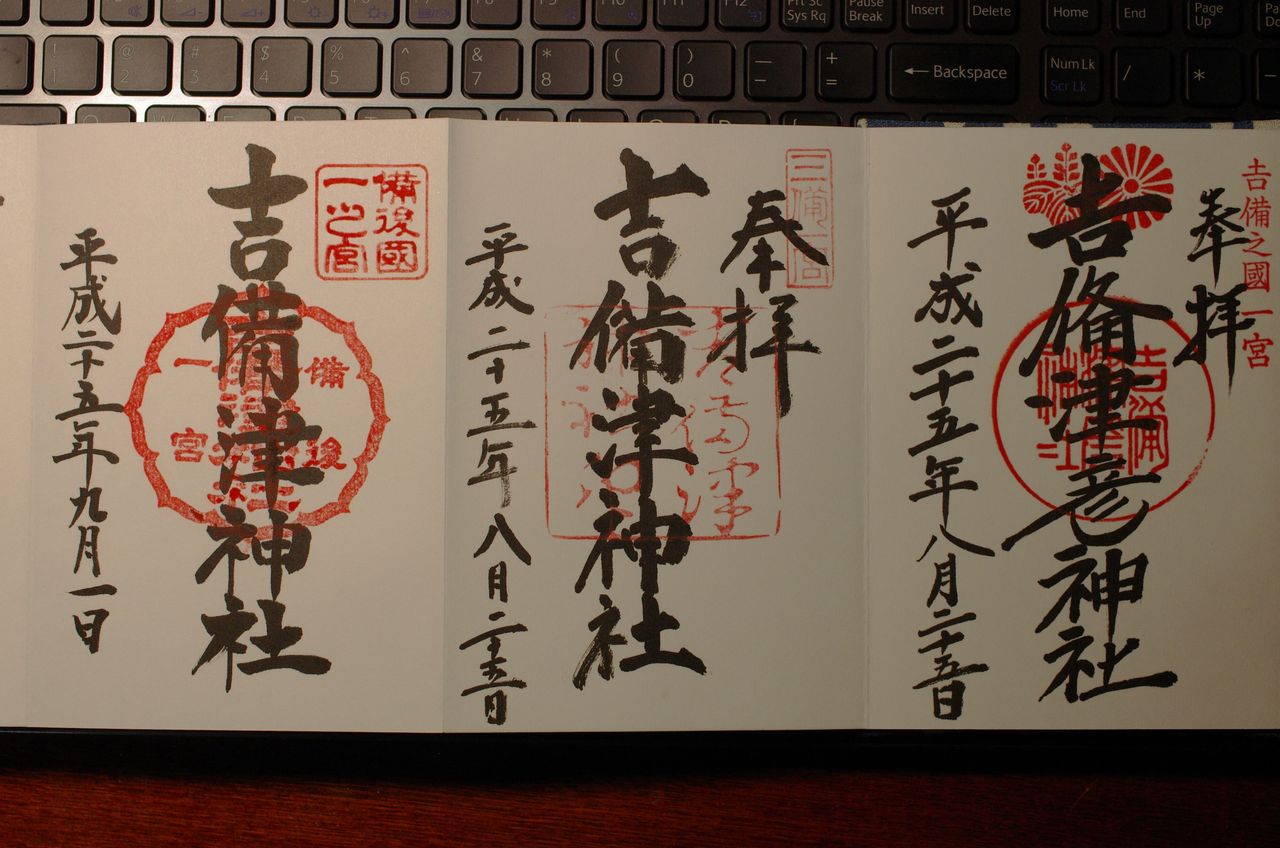 Prt Sc
Sys Rq
Pause
Break
Insert
Delete
Home
End
Page
Up
!
1
@
2
#
3
$
4
%
5
^
6
&
7
*
8
(
9
)
0
—
-
+
=
← Backspace
Num Lk
Scr Lk
/
*
吉備之國一宮
奉拝
吉備津彦神社
平成二十五年八月二十五日
三備一宮
奉拝
吉備津神社
平成二十五年八月二十五日
備後國
一之宮
吉備津神社
備後
一宮
平成二十五年九月一日